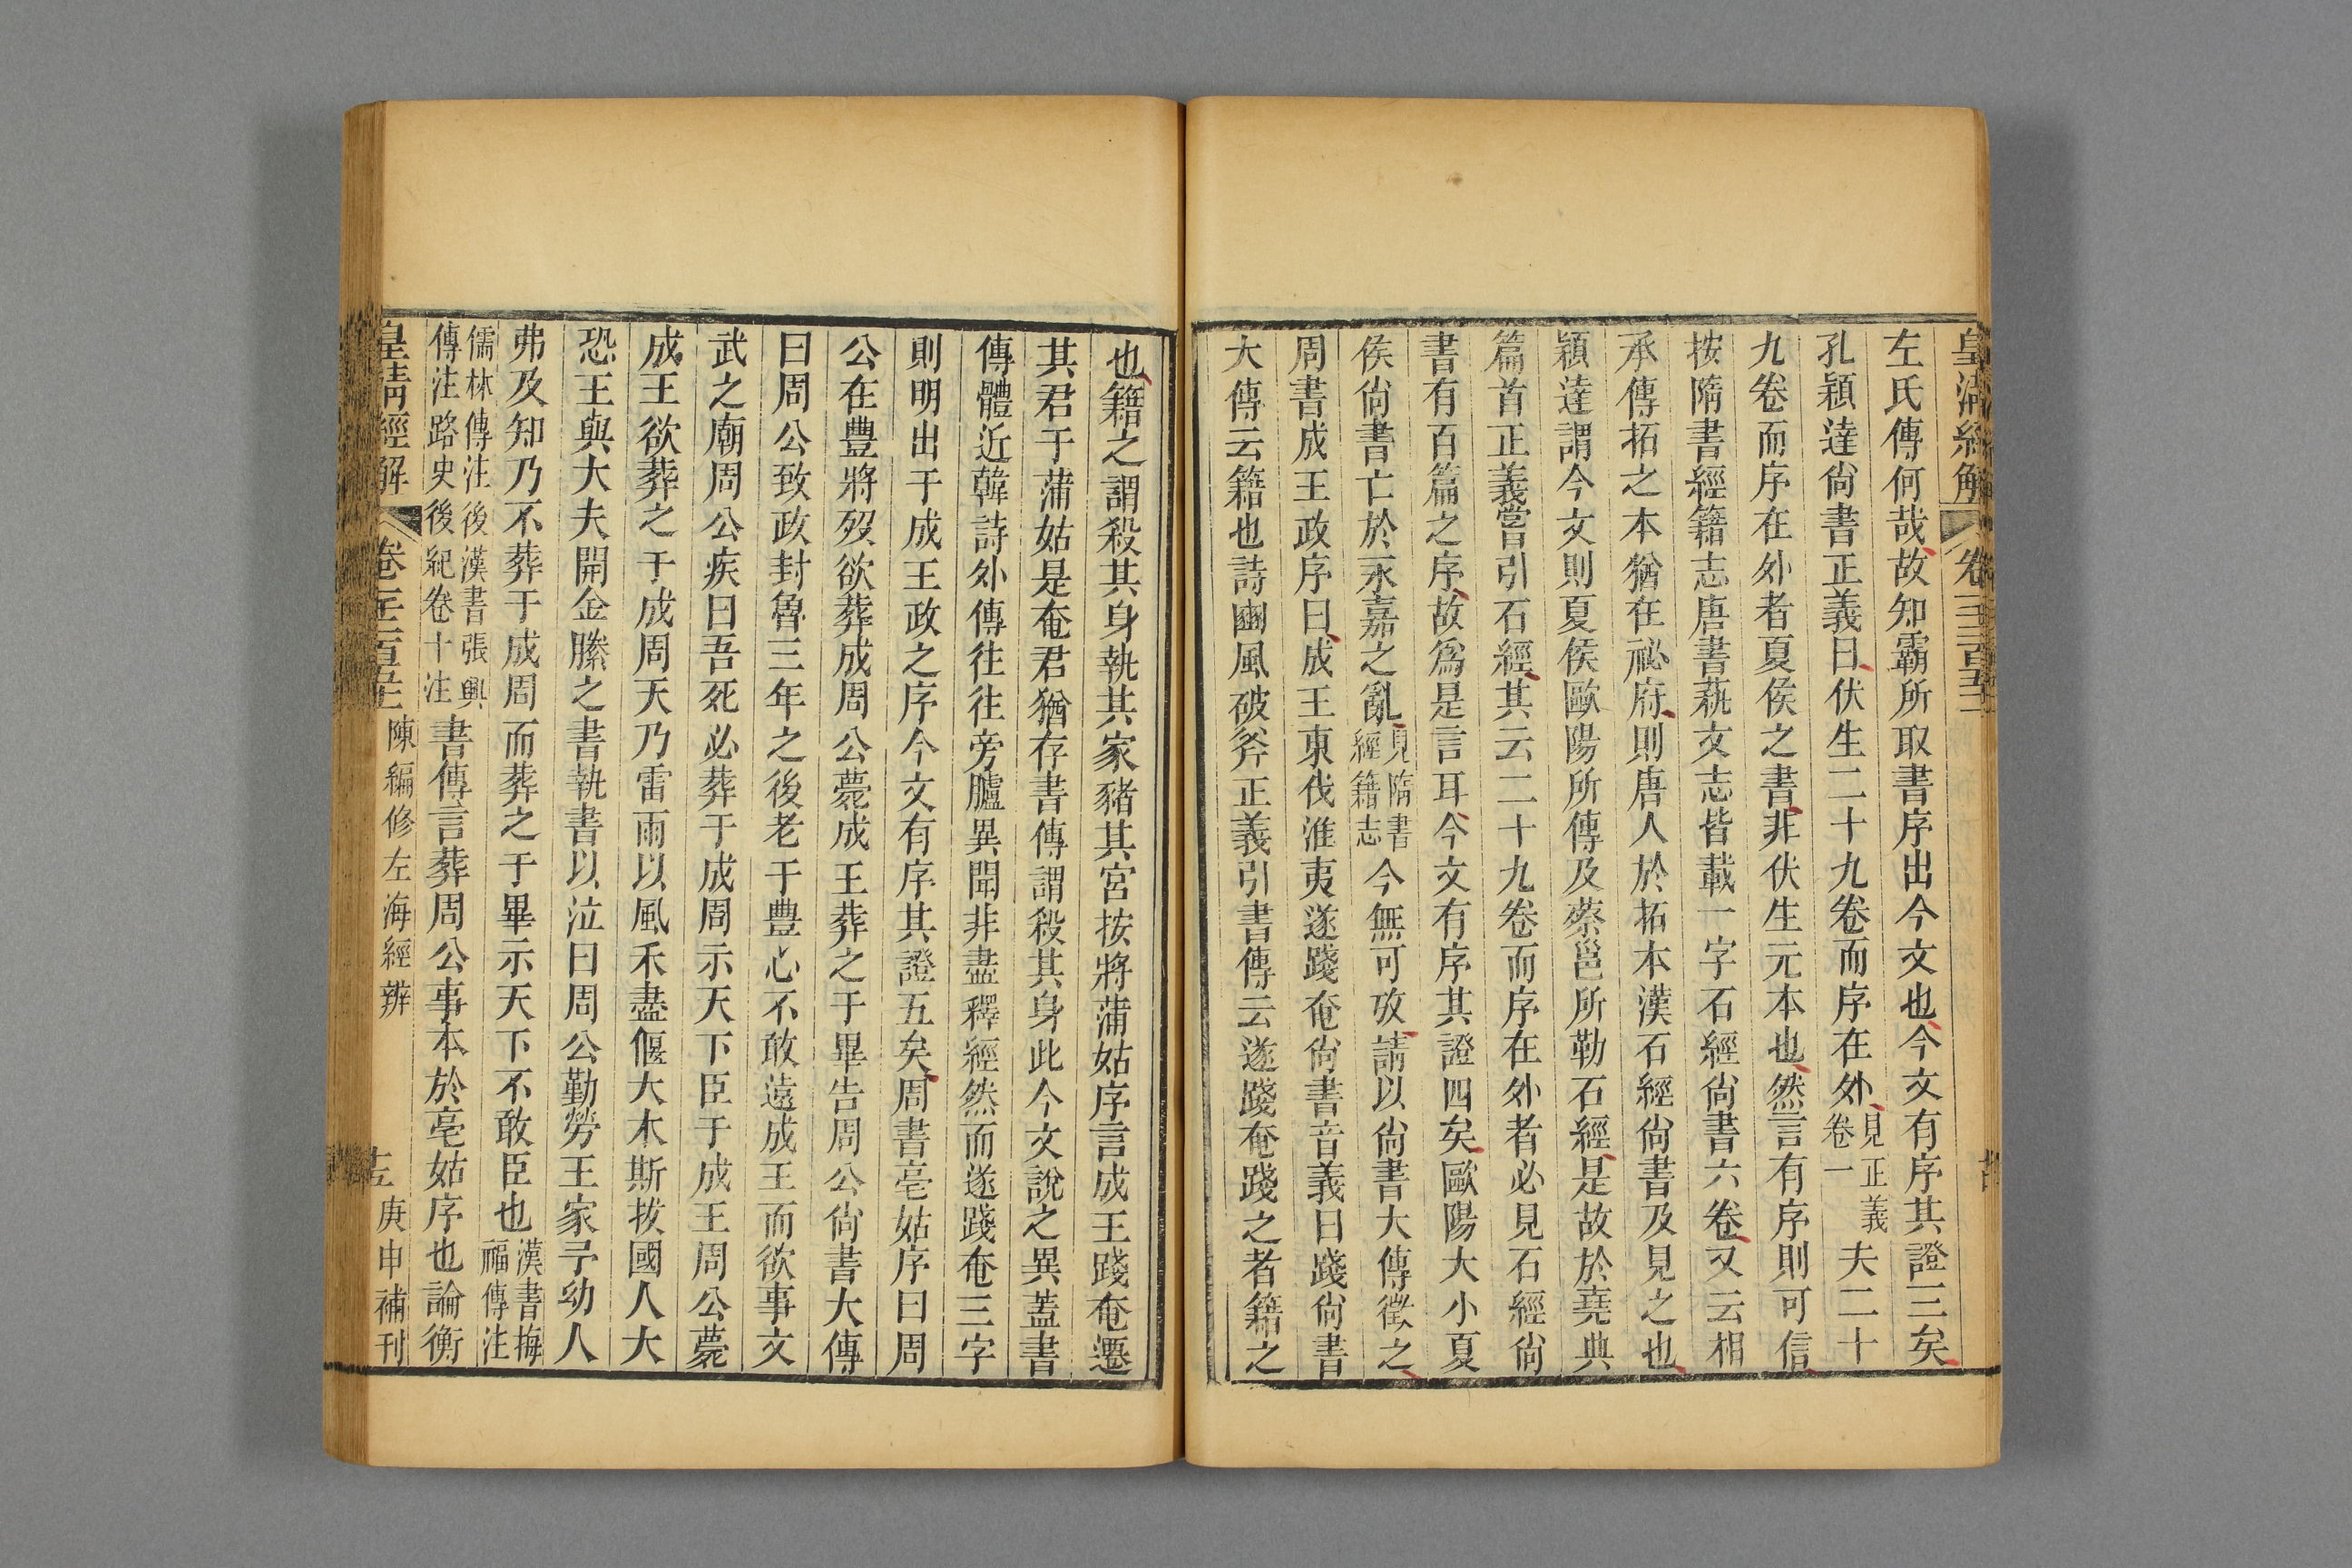 皇清經解 卷一千二百五十一
左氏傳何哉故知霸所取書序出今文也今文有序其證三矣
孔穎達尙書正義曰伏生二十九卷而序在外見正義卷一夫二十
九卷而序在外者夏侯之書非伏生元本也然言有序則可信
按隋書經籍志唐書蓺文志皆載一字石經尙書六卷又云相
承傳拓之本猶在祕府則唐人於拓本漢石經尙書及見之也
穎達謂今文則夏侯歐陽所傳及蔡邕所勒石經是故於堯典
篇首正義嘗引石經其云二十九卷而序在外者必見石經尙
書有百篇之序故爲是言耳今文有序其證四矣歐陽大小夏
侯尙書亡於永嘉之亂見隋書經籍志今無可攷請以尙書大傳徵之
周書成王政序曰成王東伐淮夷遂踐奄尙書音義曰踐尙書
大傳云籍也詩豳風破斧正義引書傳云遂踐奄踐之者籍之
也籍之謂殺其身執其家豬其宮按將蒲姑序言成王踐奄遷
其君于蒲姑是奄君猶存書傳謂殺其身此今文說之異蓋書
傳體近韓詩外傳往往旁臚異聞非盡釋經然而遂踐奄三字
則明出于成王政之序今文有序其證五矣周書亳姑序曰周
公在豐將歿欲葬成周公薨成王葬之于畢告周公尙書大傳
曰周公致政封魯三年之後老于豐心不敢遠成王而欲事文
武之廟周公疾曰吾死必葬于成周示天下臣于成王周公薨
成王欲葬之于成周天乃雷雨以風禾盡偃大木斯拔國人大
恐王與大夫開金縢之書執書以泣曰周公勤勞王家予幼人
弗及知乃不葬于成周而葬之于畢示天下不敢臣也漢書梅福傳注
儒林傳注後漢書張奐傳注路史後紀卷十注書傳言葬周公事本於亳姑序也論衡
皇清經解 陳編修左海經辨 庚申補刊